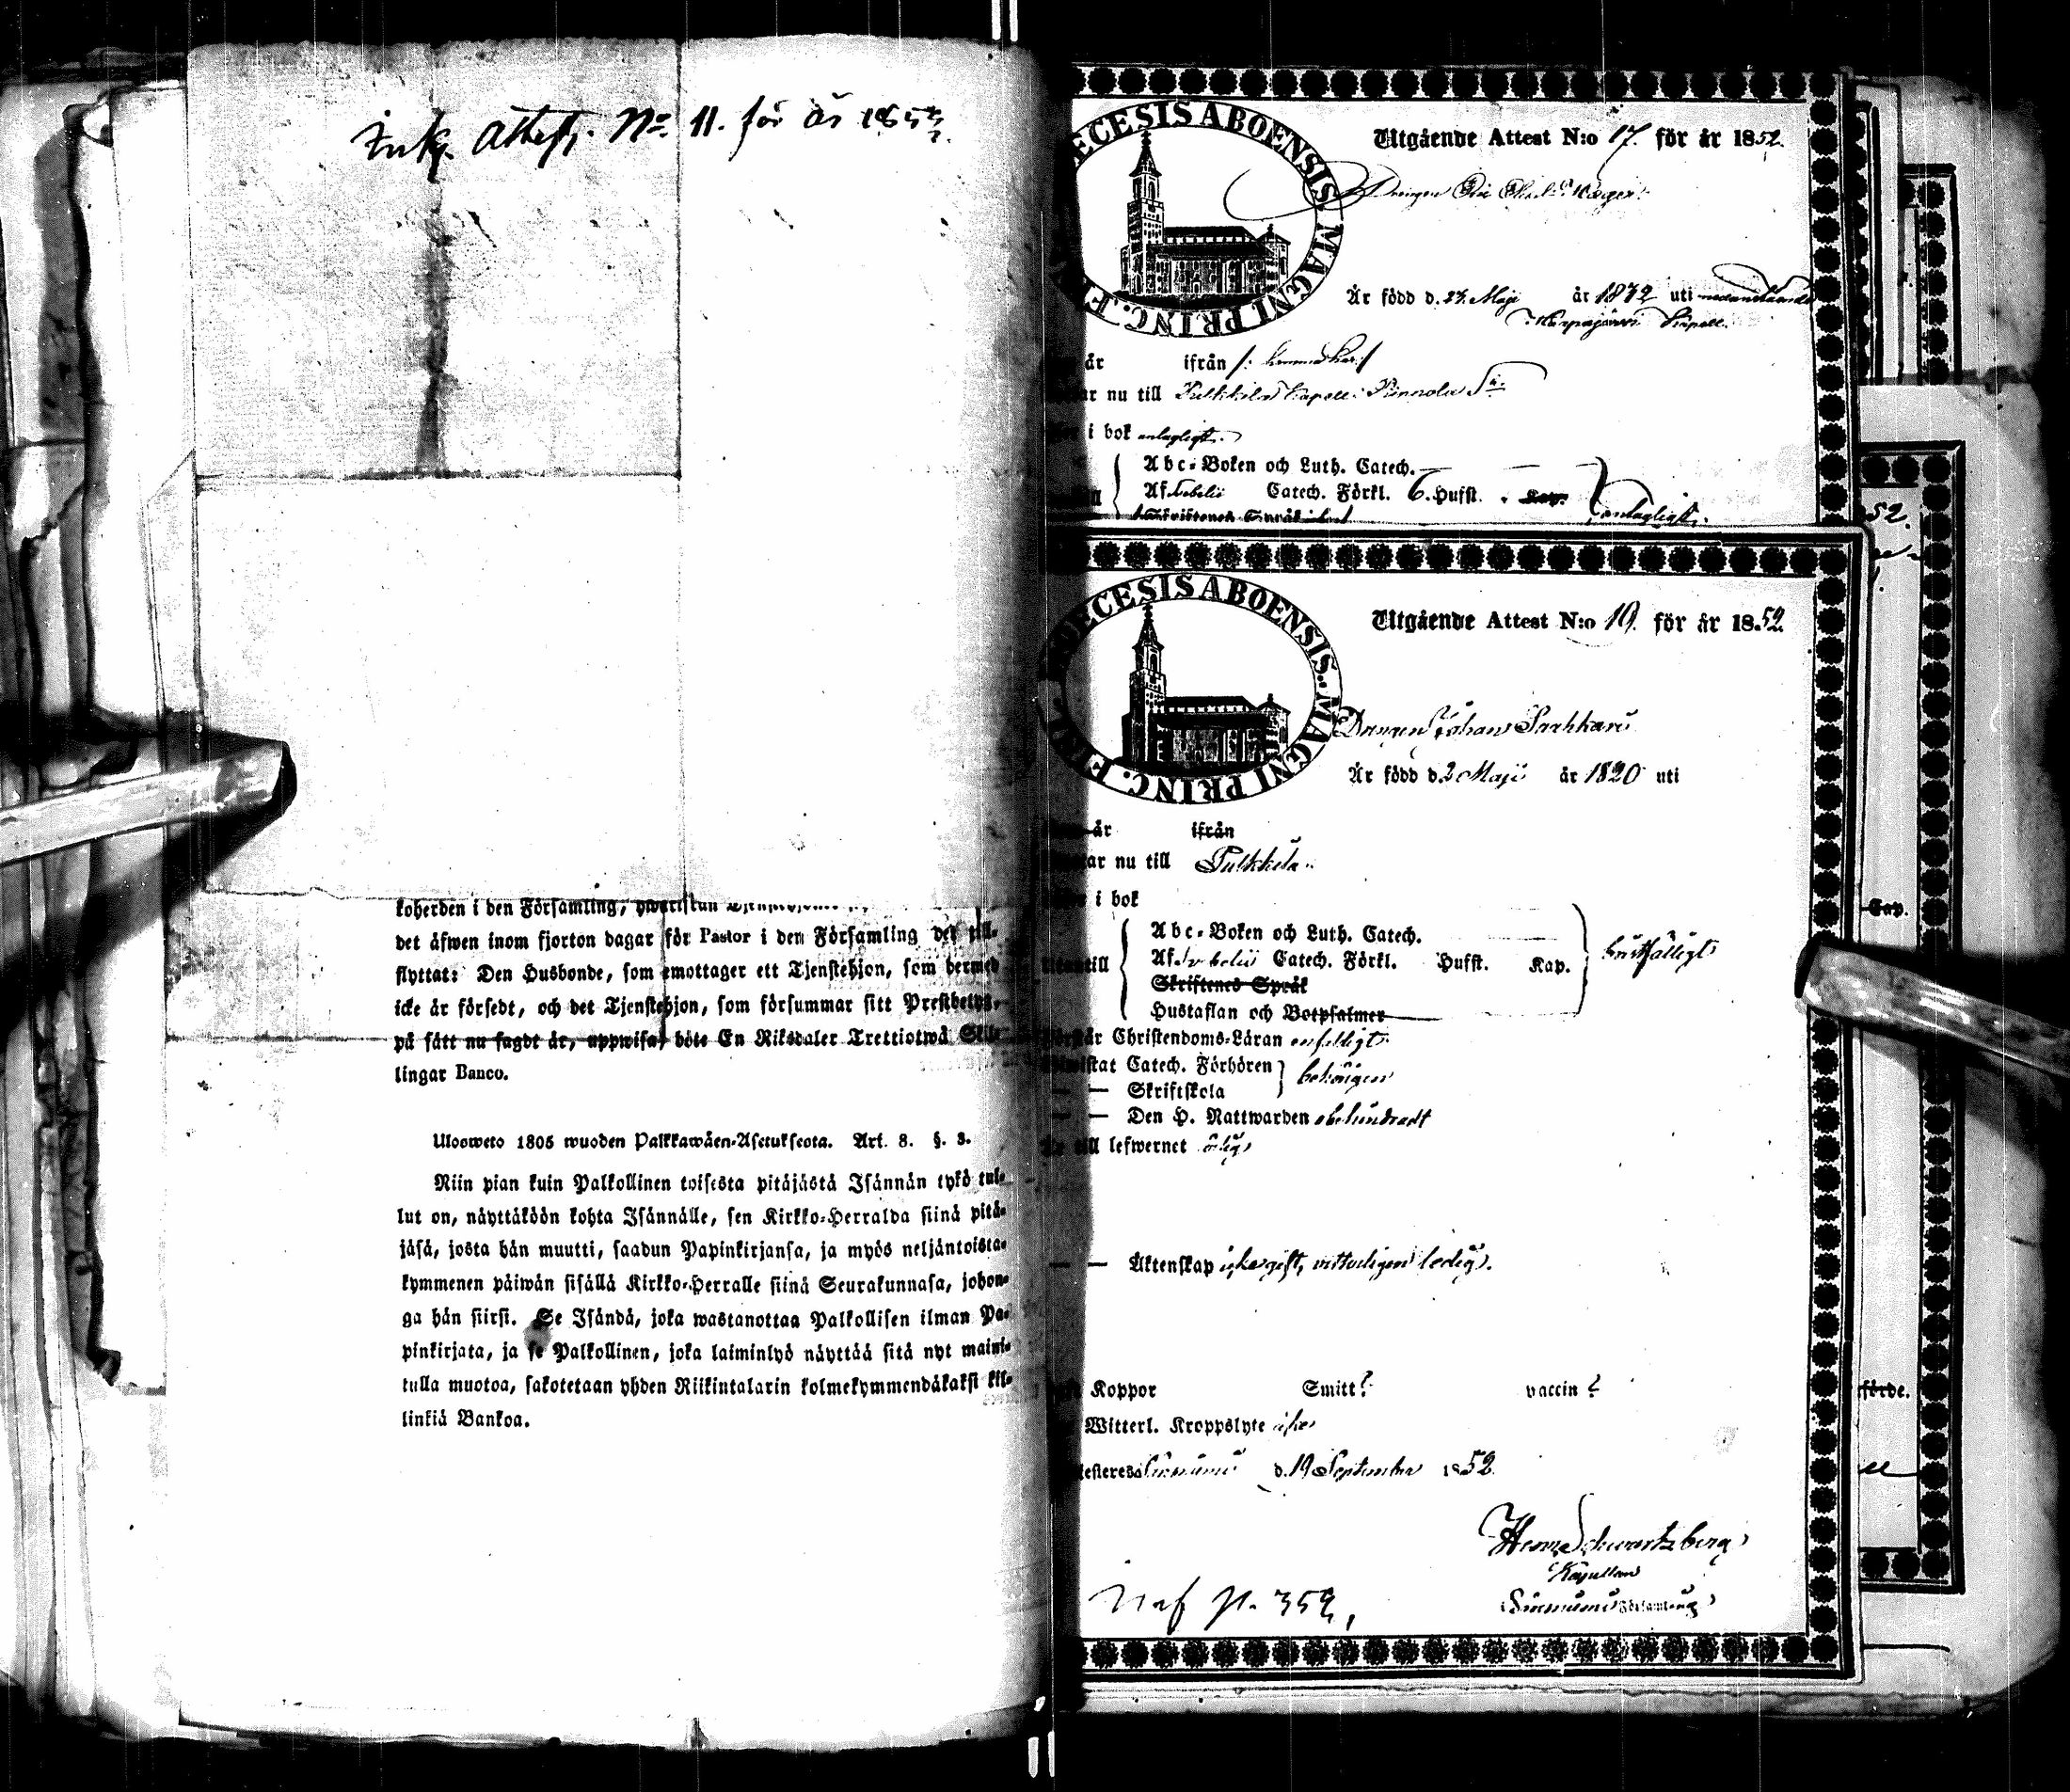 Ink. Attest. No. 11. för år 185
koherden i den Församling,
det äfwen inom fjorton dagar för Pastor i den Församling det till-
flyttat: Den Husbonde, som emottager ett Tjenstehjon, som hermed
icke är försedt, och det Tjenstehjon, som försummar sitt Prestbetyg,
på sätt nu sagdt är, uppwisa, böte En Riksdaler Trettiotwå Skil-
lingar Banco.
Ulosweto 1805 wuoden Palkkawäen-Asetuksesta. Art. 8. §. 3.
Niin pian kuin Palkollinen toisesta pitäjästä Isännän tykö tul-
lut on, näyttäköön kohta Isännälle, sen Kirkko-Herralda siinä pitä-
jäsä, josta hän muutti, saadun Papinkirjansa, ja myös neljäntoista-
kymmenen päiwän sisällä Kirkko-Herralle siinä Seurakunnasa, johon-
ga hän siirsi. Se Isändä, joka wastanottaa Palkollisen ilman Pa-
pinkirjata, ja se Palkollinen, joka laiminlyö näyttää sitä nyt maini-
tulla muotoa, sakotetaan yhden Riikintalarin kolmekymmendäkaksi kil-
linkiä Bankoa.
ECESIS ABOENSIS MAGNI PRINC. F
Utgående Attest N:o 17. för år 1852.
Drengen
Är född d. 27. Maji år 1832 uti
Kapell.
år ifrån
nu till Pulkkila Kapell
i bok antagligt.
Abc-Boken och Luth. Catech.
Af Svebelii Catech. Förkl. 6. Hufst. Kap.
Skriftenes Språk antagligt.
ECESIS ABOENSIS MAGNI PRINC. FI
Utgående Attest N:o 19. för år 1852
Drengen Johan
Är född d. 2 Maji år 1820 uti
år ifrån
nu till Pulkkila
i bok
Abc-Boken och Luth. Catech.
Utantill Af Svebelii Catech. Förkl. Hufst. Kap. bristfälligt
Skriftenes Språk
Hustaflan och Botpsalmer
Förstår Christendoms-Läran enfaldigt
Bewistat Catech. Förhören behörigen
— — Skriftskola
— — Den H. Nattwarden obehindradt
Är till lefwernet ärlig
— — Äktenskap icke gift, witterligen ledig.
Koppor Smitt? vaccin?
Witterl. Kroppslyte icke
d. 19 September 1852
Henr. Schwartzberg
Kapellan
Församling
p. 352,
52.
Cap.
förde.